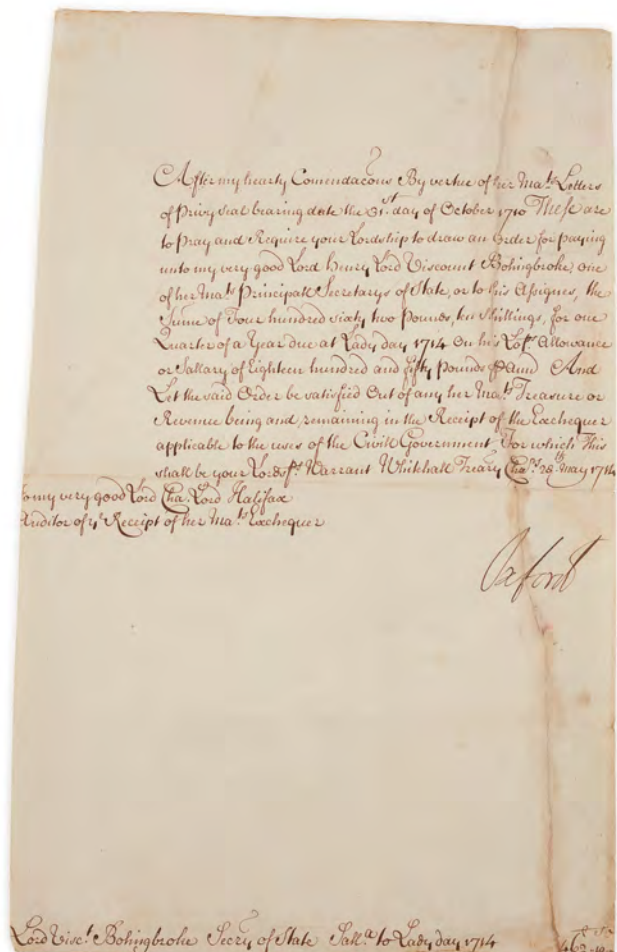 After my hearty Comendacons By vertue of her Mats Letters
of Privy Seal bearing date the 31st day of October 1710 These are
to Pray and Require your Lordship to draw an Order for paying
unto my very good Lord Henry Lord Viscount Bolingbroke one
of her Mats Principall Secretarys of State, or to his Assignes, the
Sume of Four hundred sixty two Pounds, ten Shillings, for one
Quarter of a Year due at Lady day 1714 On his Lopps Allowance
or Sallary of Eighteen hundred and fifty Pounds P Annũ And
Let the said Order be satisfied Out of any her Mats Treasure or
Revenue being and remaining in the Receipt of the Exchequer
applicable to the uses of the Civill Government For which This
shall be your Lordpps Warrant Whitehall Treary Chabrs 28th May 1714
To my very good Lord Cha: Lord Halifax
Auditor of ye Receipt of her Mats Exchequer
Oxford
Lord Visct Bolingbroke Secry of State Salla to Lady day 1714 462 10